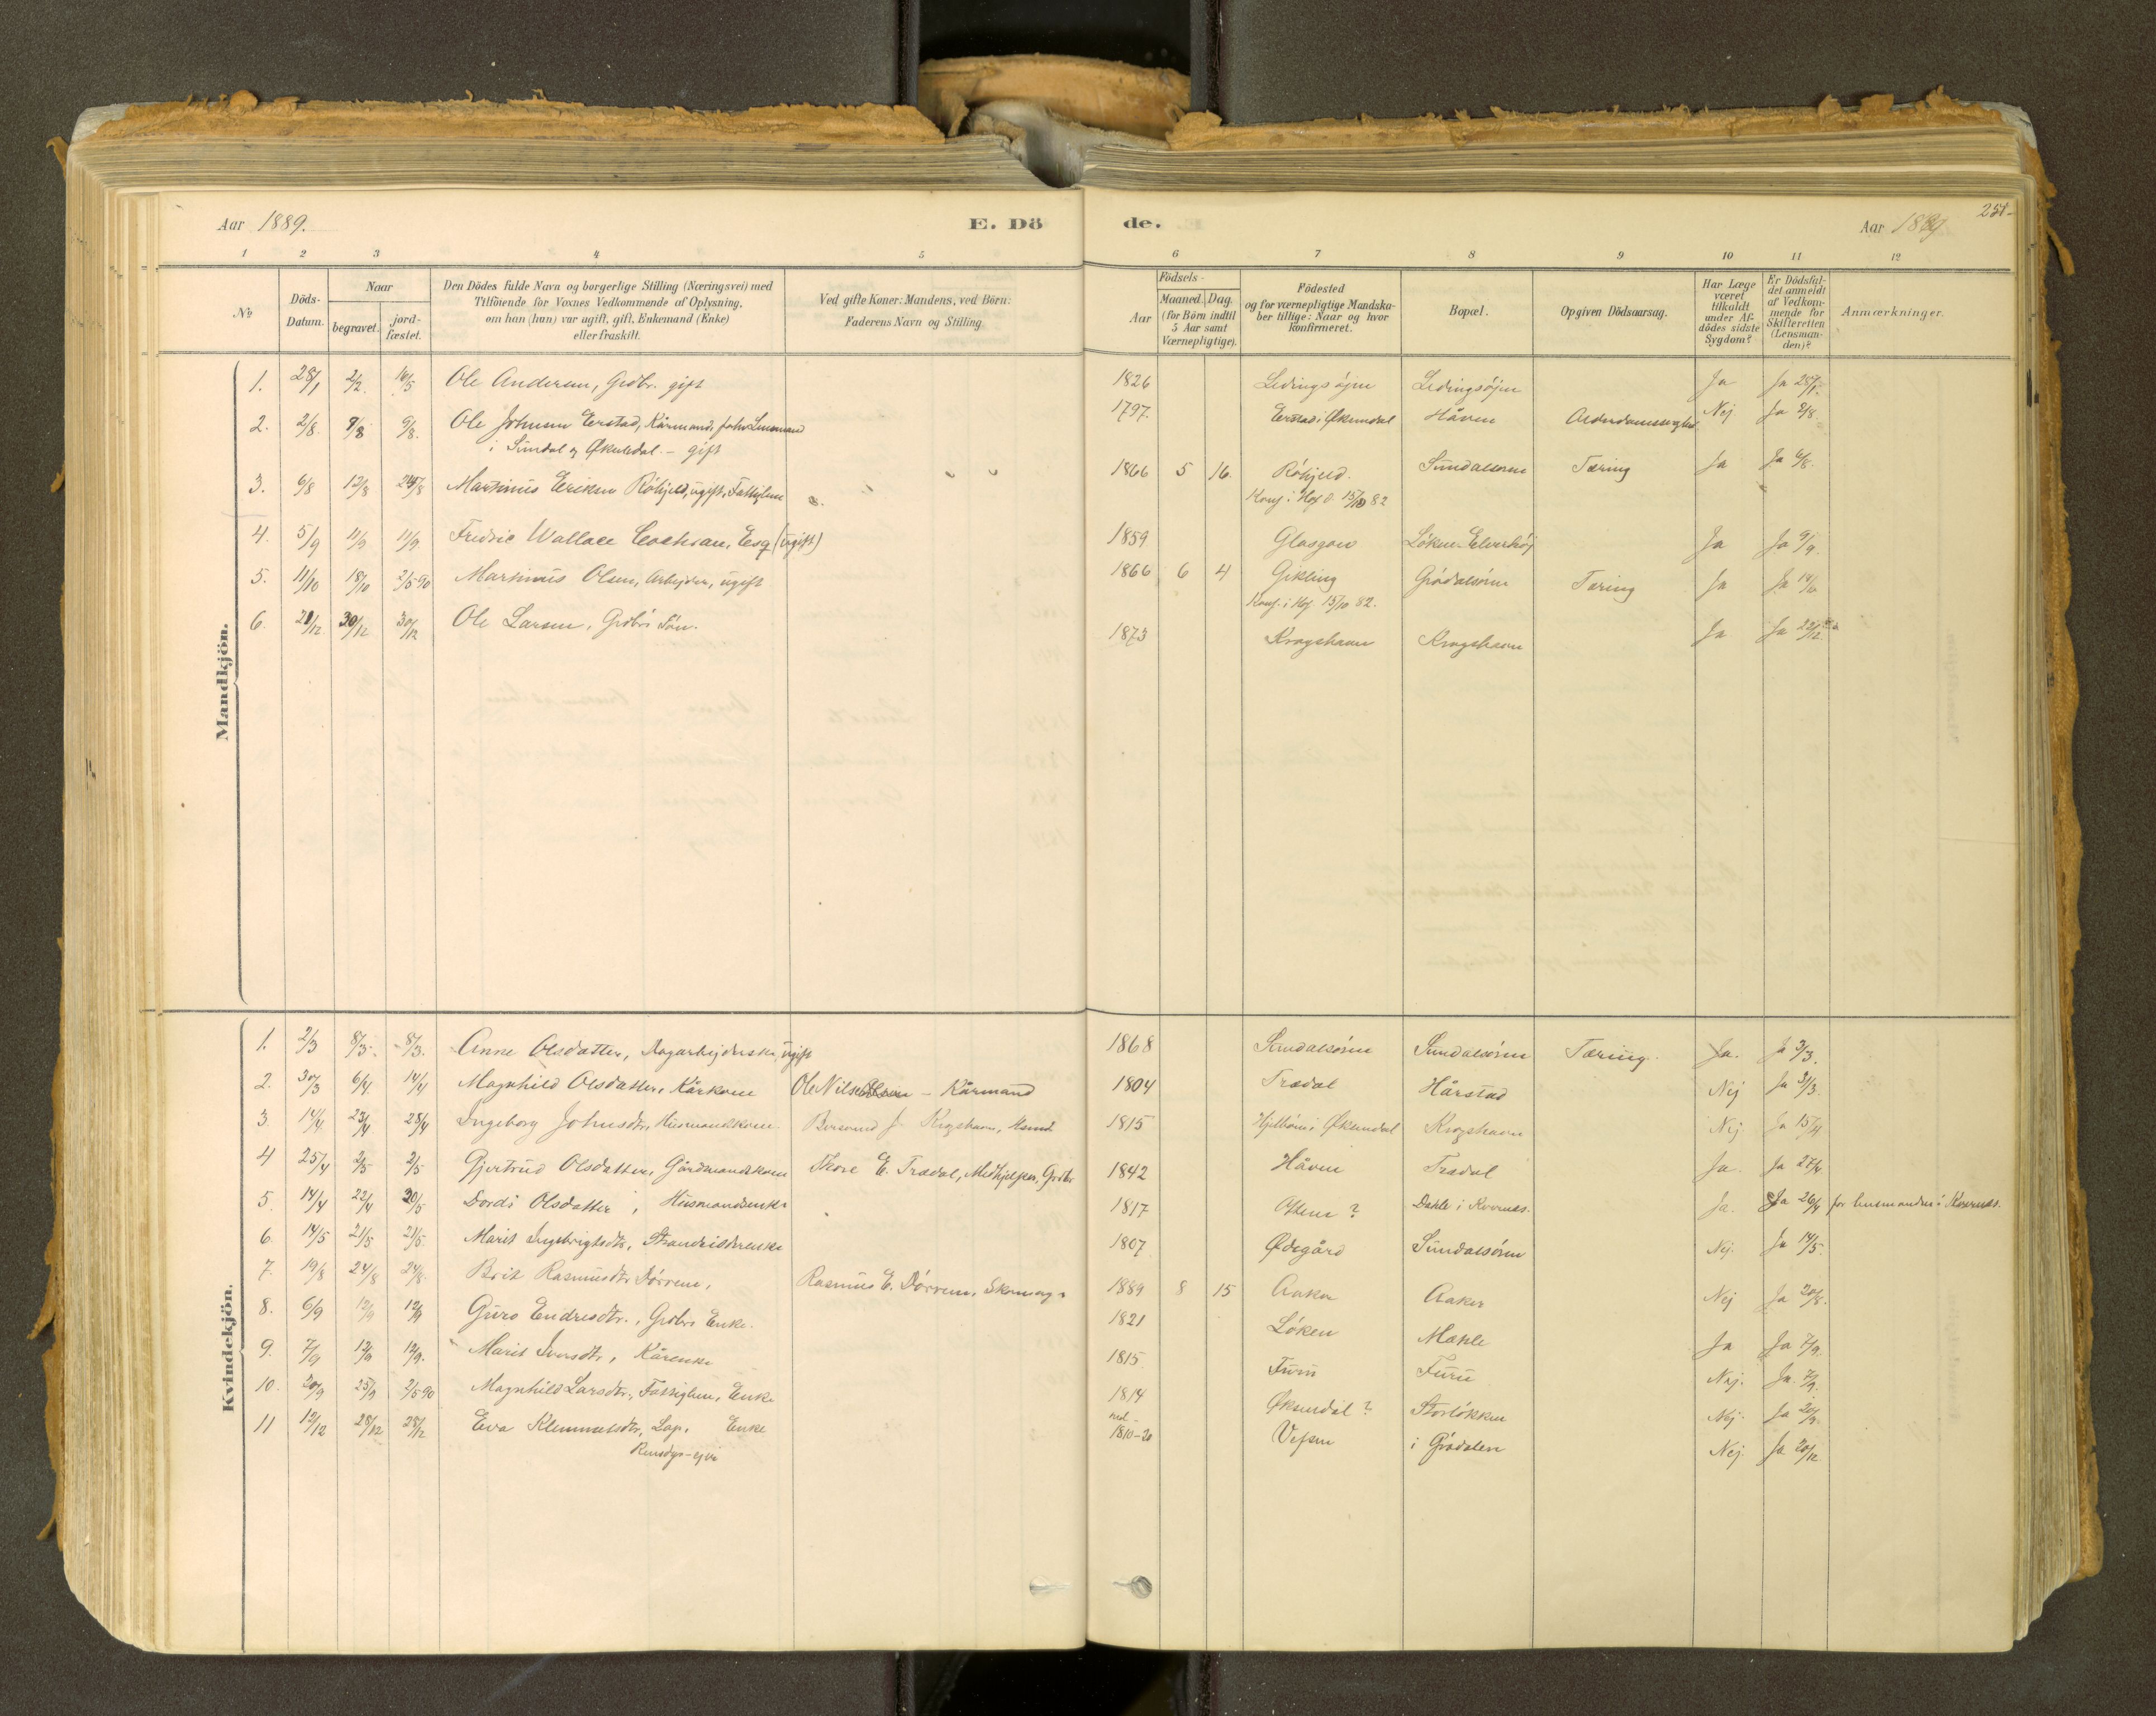 Aar 1889.
E. Dö
de.
Aar 1889
251
1 2 3 4 5
6 7 8 9 10 11 12
No
Döds-Datum.
Naar
begravet.
jord-fæstet.
Den Dödes fulde Navn og borgerlige Stilling (Næringsvei) med
Tilföiende for Voxnes Vedkommende af Oplysning,
om han (hun) var ugift, gift, Enkemand (Enke)
eller fraskilt.
Ved gifte Koner: Mandens, ved Börn:
Faderens Navn og Stilling.
Födsels-
Aar
Maaned. Dag.
(for Börn indtil
5 Aar samt
Værnepligtige).
Födested
og for værnepligtige Mandska-
ber tillige: Naar og hvor
konfirmeret.
Bopæl.
Opgiven Dödsaarsag.
Har Læge
været
tilkaldt
under Af-
dödes sidste
Sygdom?
Er Dödsfal-
det anmeldt
af Vedkom-
mende for
Skifteretten
(Lensman-
den)?
Anmærkninger.
Mandkjön.
1. 28/1 2/2 16/5 Ole Andersen, Grdbr. gift 1826 Ledingsøjen Ledingsøjen Ja Ja 28/1
2. 2/8 9/8 9/8 Ole Johnsen Eerstad, Kårmand, forhv. Lensmand 1797. Eerstad i Øksendal Håven Nej Ja 9/8
i Sundal og Øksendal. - gift
3. 6/8 12/8 25/8 Martinus Eriksen Röhjeld, ugift, Fattiglem 1866 5 16. Röhjeld. Sundalsøren Tæring Ja Ja 6/8
Konf. i Hof d. 15/10 82
4. 5/9 11/9 11/9 Fredric Wallace Cochran, Esq (ugift) 1859 Glasgow Löken-Elverhöj Ja Ja 9/9
5. 11/10 18/10 2/5 90 Martinus Olsen, Arbejder, ugift 1866 6 4 Gikling Grödalsören Tæring Ja Ja 14/10
Konf. i Hof 15/10 82.
6. 21/12 30/12 30/12 Ole Larsen, Grdbrs Sön. 1873 Krogshavn Krogshavn Ja Ja 22/12
Kvindekjön.
1. 2/3 8/3 8/3. Anne Olsdatter, Dagarbejderske, ugift 1868 Sundalsøren Sundalsøren Tæring. Ja. Ja 3/3.
2. 30/3 6/4 14/4 Magnhild Olsdatter, Kårkone Ole Nilsen - Kårmand 1804 Trædal Hårstad Nej Ja 31/3.
3. 14/4 23/4 28/4 Ingeborg Johnsdtr, Husmandskone. J. Krogshavn, Hsmd. 1815 i Øksendal Krogshavn Nej Ja 15/4
4 25/4 2/5 2/5 Gjertrud Olsdatter, Gårdmandskone Tore E. Trædal, Medhjelper, Grdbr 1842 Håven Trædal Ja. Ja 27/4
5. 14/4 22/4 30/5 Dordi Olsdatter, Husmandsenke 1817 Ottem? Dahle i Kvernæs. Ja. Ja 26/4 for lensmanden i Kvernæs.
6. 14/5 21/5 21/5 Marit Ingebrigtsdtr, Strandsidderenke 1807 Ødegård Sundalsøren Nej. Ja 14/5.
7. 19/8 24/8 24/8 Brit Rasmusdtr Dörrem, Rasmus E. Dörrem, Skomager 1889 8 15 Aaker Aaker Nej Ja 20/8.
8. 6/9 12/9 12/9 Guro Endresdtr., Grdbrs Enke. 1821 Löken Mæhle Ja Ja 7/9.
9. 7/9 12/9 12/9. Marit Iversdtr, Kårenke 1815 Furu Furu Nej. Ja. 7/9.
10. 20/9 25/9 2/5 90 Magnhild Larsdtr., Fattiglem, Enke 1814 Øksendal? Storløkken Nej. Ja 20/9
11 12/12 28/12 28/12 Eva Klemmetsdtr, Lap. Enke 1810-20 Vefsen i Grödalen Nej. Ja 20/12
Rensdyr-ejer